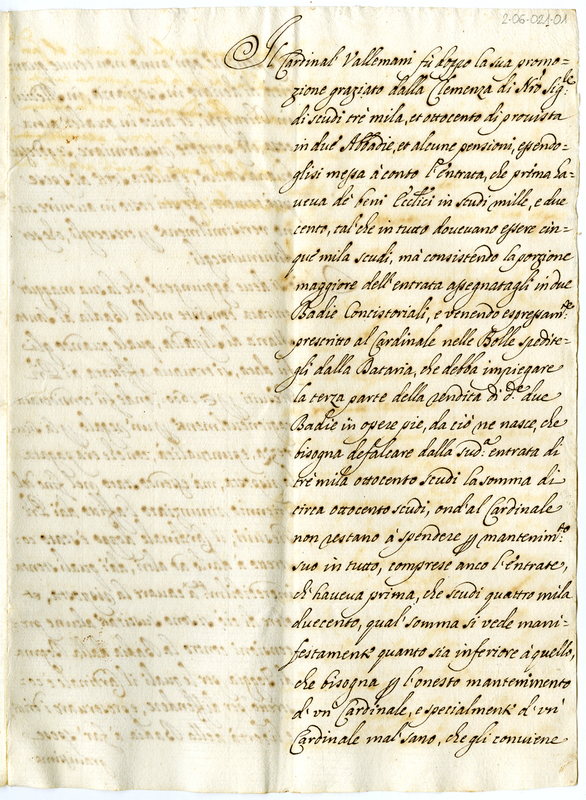 2-06-021-01
Il Cardinal' Vallemani fù doppo la sua promo=
zione graziato dalla Clemenza di Nrõ Sig.re
di scudi trè mila, et ottocento di provista
in due Abbadie, et alcune pensioni, essendo=
glisi messa à conto l'entrata, che prima ha=
veva de' beni Eccl'ici in scudi mille, e due
cento, tal' che in tutto dovevano essere cin=
que mila scudi, mà consistendo la porzione
maggiore dell'entrata assegnatagli in due
Badie Concistoriali, e venendo espressam.te
prescritto al Cardinale nelle Bolle spedite=
gli dalla Dataria, che debba impiegare
la terza parte della rendita di d.e due
Badie in opere pie, da ciò ne nasce, che
bisogna defalcare dalla sud.a entrata di
trè mila ottocento scudi la somma di
circa ottocento scudi, ond' al Cardinale
non restano à spendere p mantenim.to
suo in tutto, comprese anco l'entrate,
ch' haveva prima, che scudi quattro mila
duecento, qual' somma si vede mani=
festament' quanto sia inferiore à quello,
che bisogna p l'onesto mantenimento
d' un' Cardinale, e specialment' d' un'
Cardinale mal' sano, che gli conviene